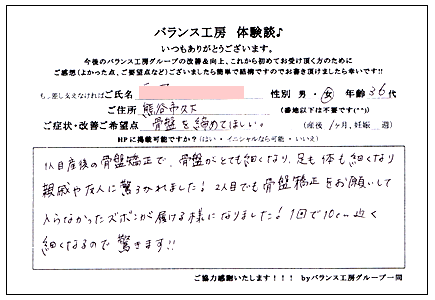 バランス工房 体験談♪
いつもありがとうございます。
今後のバランス工房グループの改善&向上、これから初めてお受け頂く方のために
ご感想(よかった点、ご要望点など)ございましたら簡単で結構ですのでお書き頂けましたら幸いです!!
もし差し支えなければご氏名 性別 男・女 年齢 36代
ご住所 熊谷市 (番地以下は不要です(^^))
ご症状・改善ご希望点 骨盤を締めてほしい。 (産後 1ヶ月、妊娠 週)
HPに掲載可能ですか?(はい・イニシャルなら可能・いいえ)
1人目産後の骨盤矯正で、骨盤がとても細くなり、足も体も細くなり
親戚や友人に驚かれました! 2人目でも骨盤矯正をお願いして
入らなかったズボンが履ける様になりました! 1回で10cm近く
細くなるので驚きます!!
ご協力感謝いたします!!! byバランス工房グループ一同